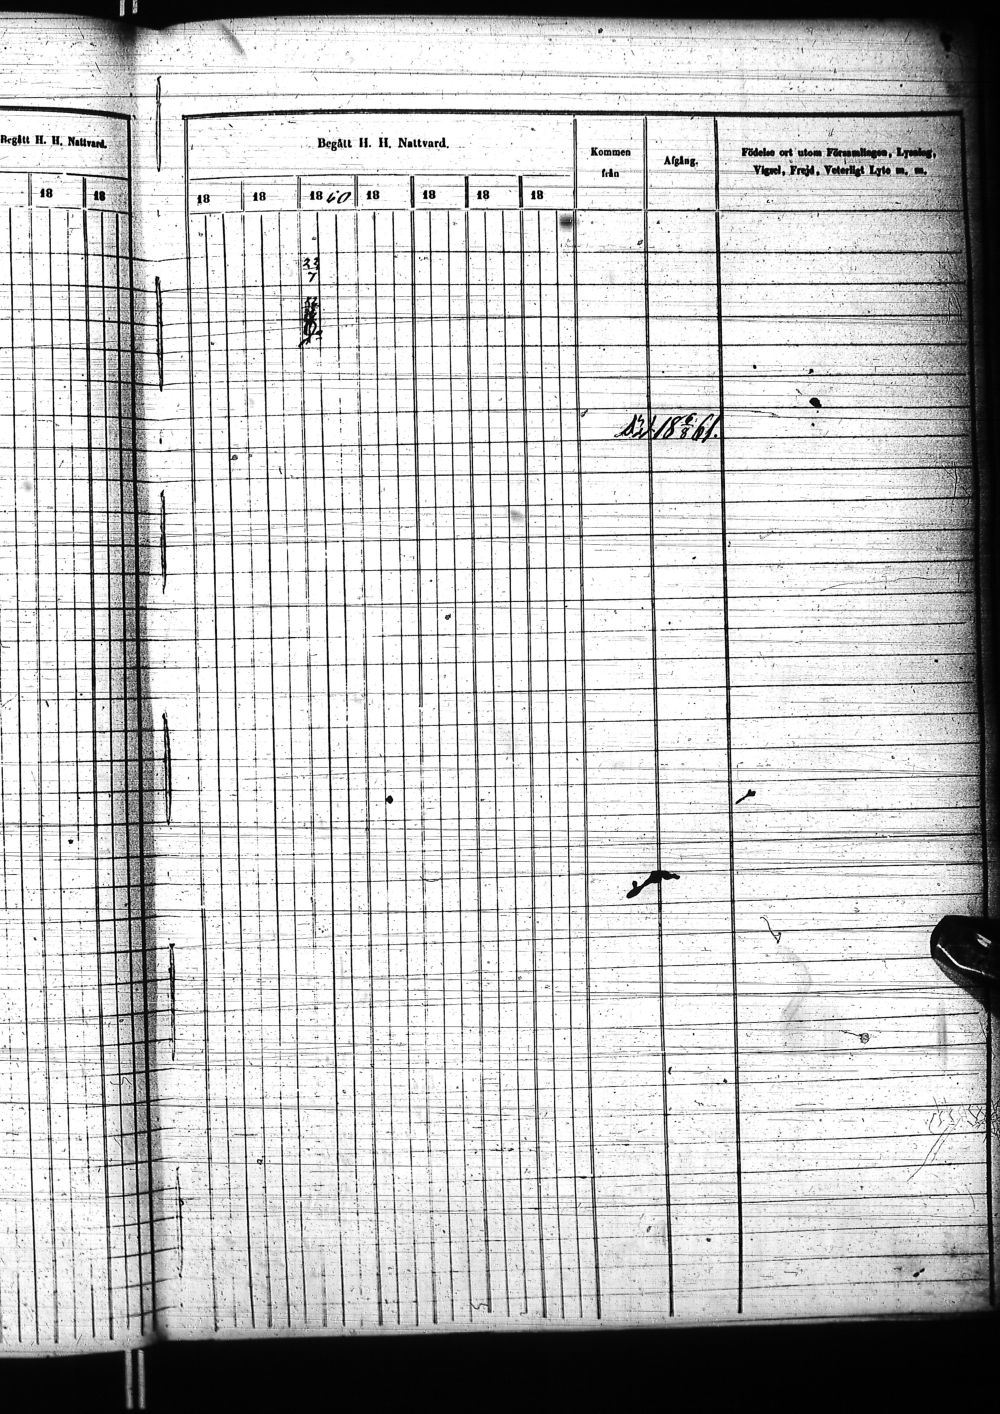 Begått H. H. Nattvard.
18 18
Begått H. H. Nattvard.
Kommen från
Afgång.
Födelse ort utom Församlingen, Lysning,
Vigsel, Frejd, Veterligt Lyte m. m.
18 18 1860 18 18 18 18
22
7
18 6/8 61.